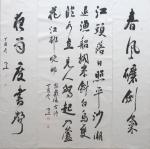 春風礪劍氣
江頭落日照平沙潮
退漁船閣岸斜白鳥一雙
臨水立見人驚起入蘆
花江村晚眺
夜雨度書聲